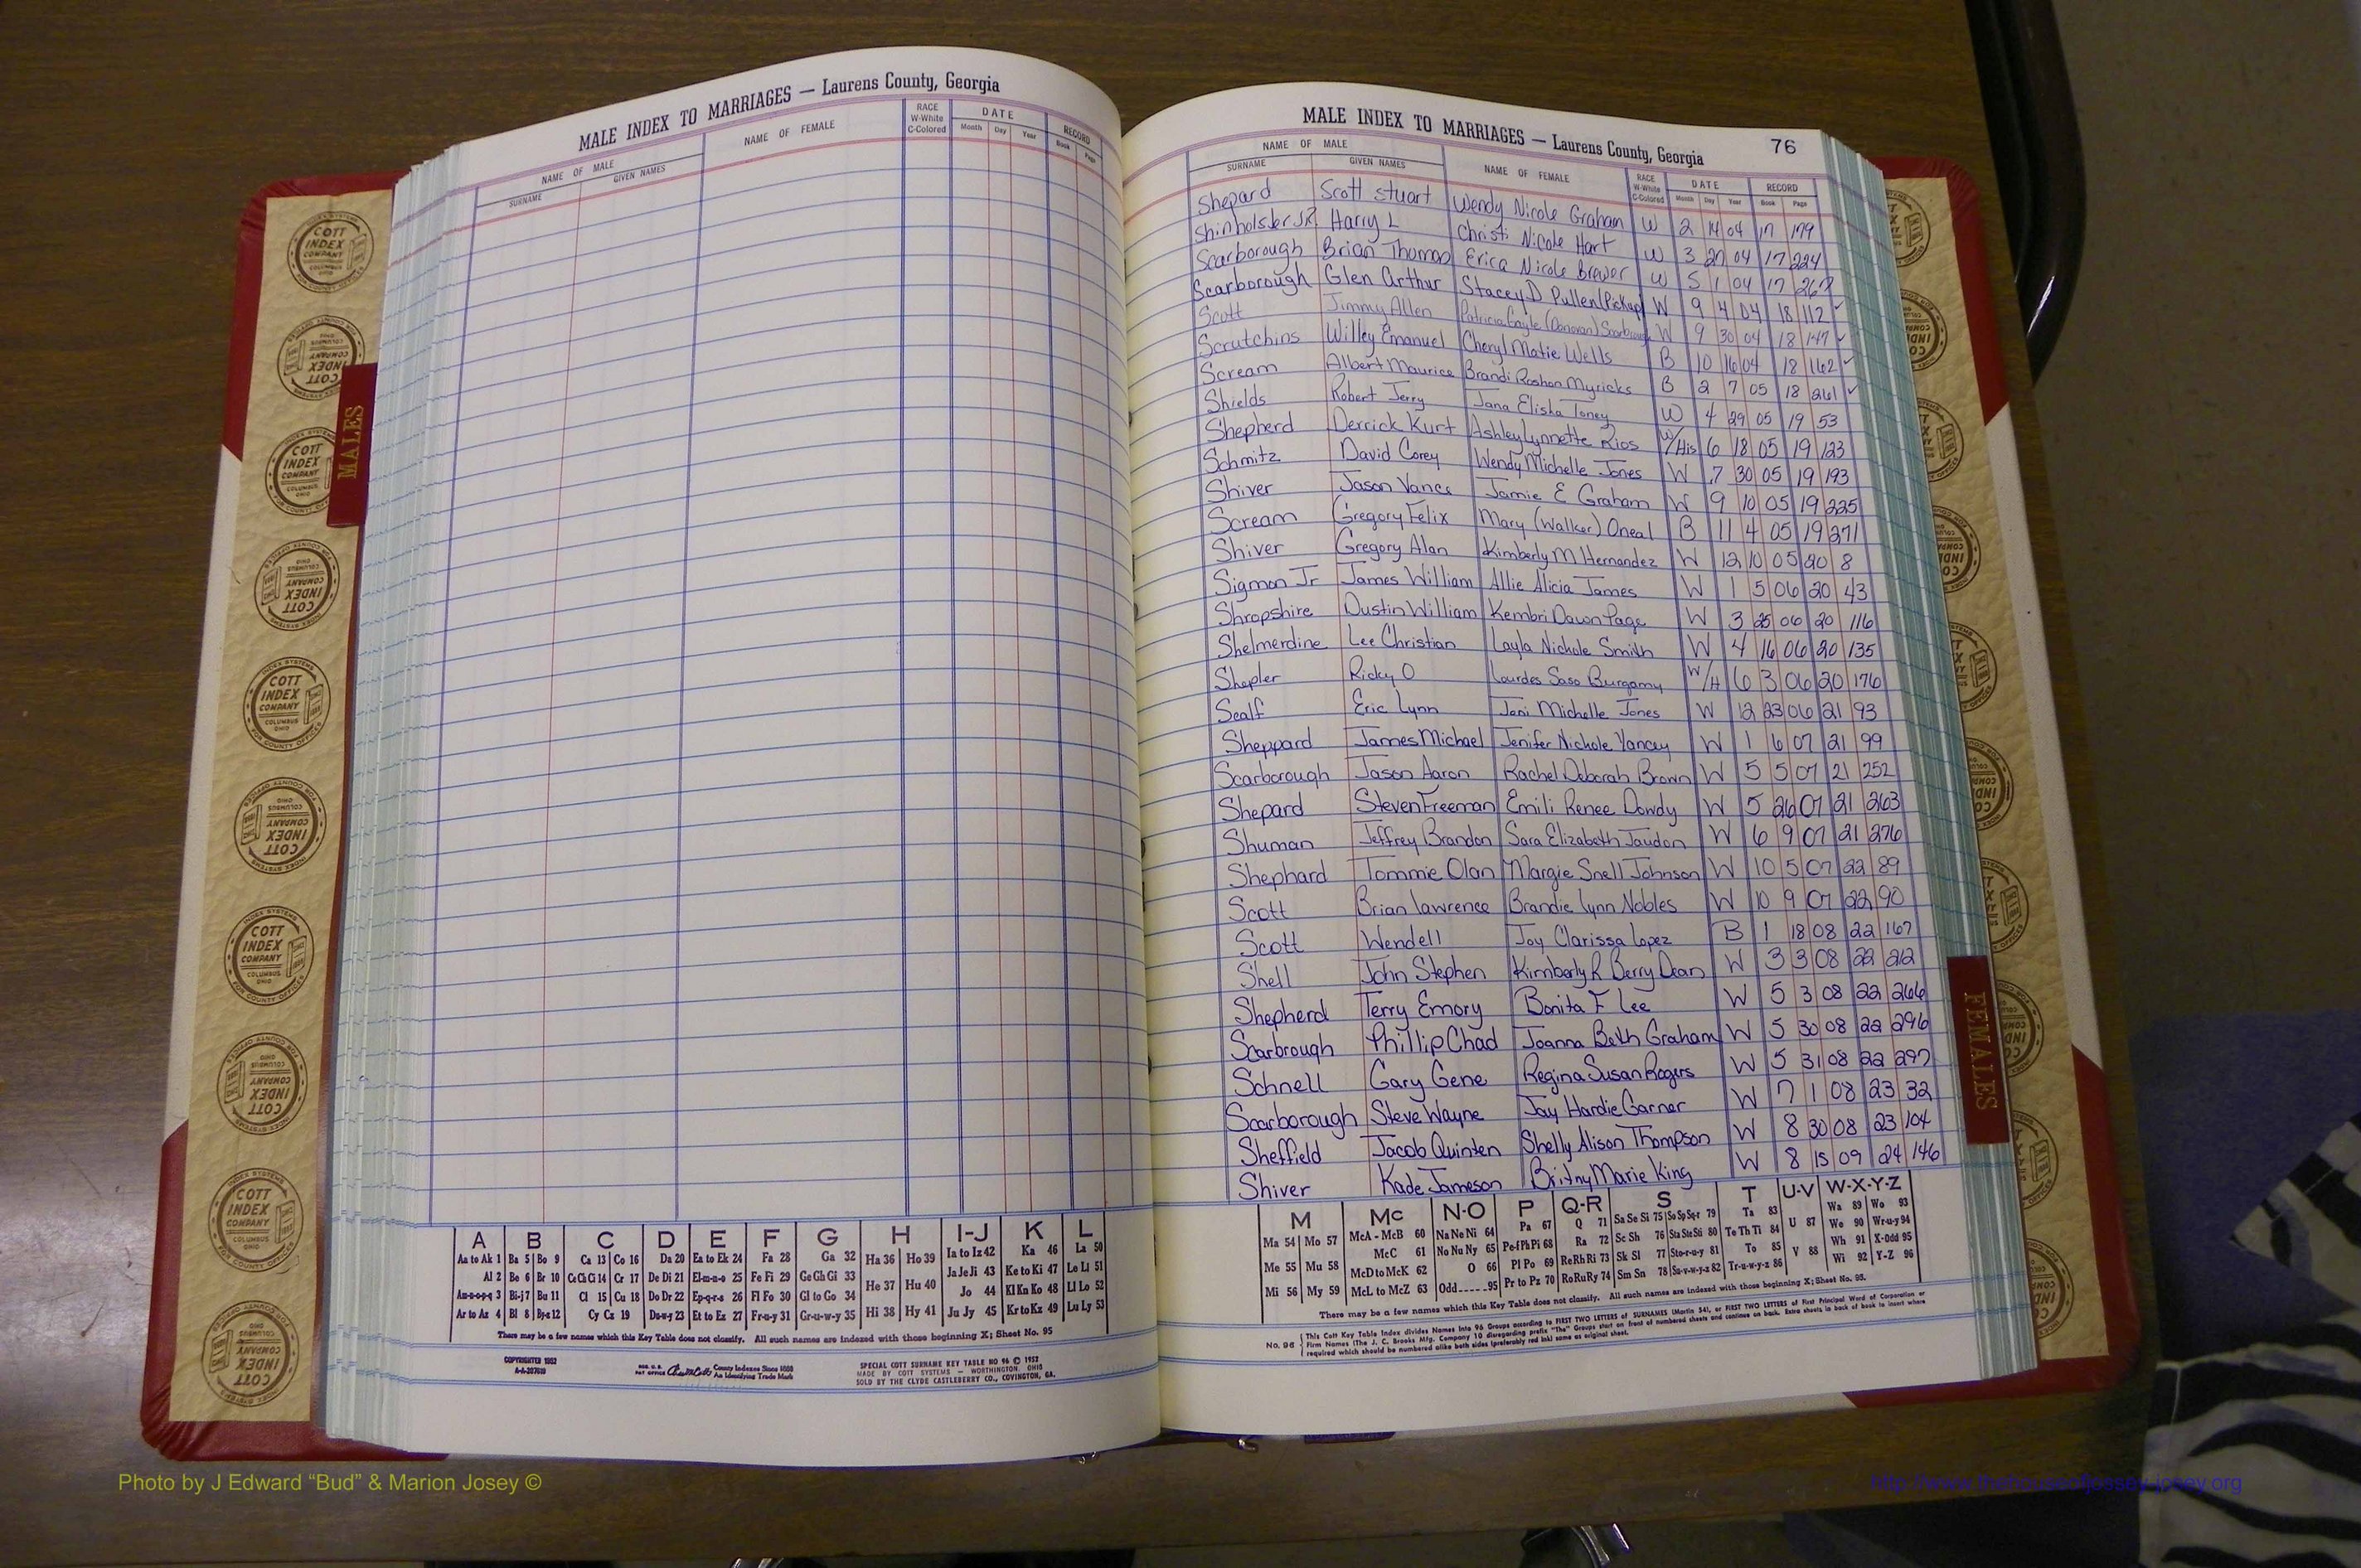 MALE INDEX TO MARRIAGES — Laurens County, Georgia
NAME OF MALE NAME OF FEMALE RACE W-White C-Colored DATE RECORD
SURNAME GIVEN NAMES Month Day Year Book Page
MALES
COTT INDEX COMPANY COLUMBUS OHIO
INDEX SYSTEMS FOR COUNTY OFFICES
A B C D E F G H I-J K L
Aa to Ak 1 Ba 5 Bo 9 Ca 13 Co 16 Da 20 Ea to Ek 24 Fa 28 Ga 32 Ha 36 Ho 39 Ia to Iz 42 Ka 46 La 50
Al 2 Be 6 Br 10 Ce Ch Ci 14 Cr 17 De Di 21 El-m-n-o 25 Fe Fi 29 Ge Gh Gi 33 He 37 Hu 40 Ja Je Ji 43 Ke to Ki 47 Le Li 51
Am-n-o-p-q 3 Bi-j 7 Bu 11 Cl 15 Cu 18 Do Dr 22 Ep-q-r-s 26 Fl Fo 30 Gl to Go 34 Jo 44 Kl Kn Ko 48 Ll Lo 52
Ar to Az 4 Bl 8 By-z 12 Cy Cz 19 Du-w-y 23 Et to Ez 27 Fr-u-y 31 Gr-u-w-y 35 Hi 38 Hy 41 Ju Jy 45 Kr to Kz 49 Lu Ly 53
There may be a few names which this Key Table does not classify. All such names are indexed with those beginning X; Sheet No. 95
COPYRIGHTED 1952
County Indexes Since 1888
An Identifying Trade Mark
SPECIAL COTT SURNAME KEY TABLE NO 96 © 1952
MADE BY COTT SYSTEMS — WORTHINGTON, OHIO
SOLD BY THE CLYDE CASTLEBERRY CO., COVINGTON, GA.
MALE INDEX TO MARRIAGES — Laurens County, Georgia 76
NAME OF MALE NAME OF FEMALE RACE W-White C-Colored DATE RECORD
SURNAME GIVEN NAMES Month Day Year Book Page
Shepard Scott Stuart Wendy Nicole Graham W 2 14 04 17 179
Shinholster JR. Harry L Christi Nicole Hart W 3 27 04 17 224
Scarborough Brian Thomas Erica Nicole Brewer W 5 1 04 17 267
Scarborough Glen Arthur Stacey D Pullen (Pickup) W 9 4 04 18 112 ✓
Scott Jimmy Allen Patricia Gayle (Donovan) Scarborough W 9 30 04 18 147 ✓
Scrutchins Willey Emanuel Cheryl Matie Wells B 10 16 04 18 162 ✓
Scream Albert Maurice Brandi Rashon Myricks B 2 7 05 18 261 ✓
Shields Robert Jerry Jana Elisha Toney W 4 29 05 19 53
Shepherd Derrick Kurt Ashley Lynnette Rios W/His 6 18 05 19 123
Schmitz David Corey Wendy Michelle Jones W 7 30 05 19 193
Shiver Jason Vance Jamie E Graham W 9 10 05 19 225
Scream Gregory Felix Mary (Walker) Oneal B 11 4 05 19 271
Shiver Gregory Alan Kimberly M Hernandez W 12 10 05 20 8
Sigmon Jr James William Allie Alicia James W 1 5 06 20 43
Shropshire Dustin William Kembri Dawn Page W 3 25 06 20 116
Shelmerdine Lee Christian Layla Nichole Smith W 4 16 06 20 135
Shepler Ricky O Lourdes Saso Burgamy W/H 6 3 06 20 176
Sealf Eric Lynn Joni Michelle Jones W 12 23 06 21 93
Sheppard James Michael Jenifer Nichole Yancey W 1 6 07 21 99
Scarborough Jason Aaron Rachel Deborah Brown W 5 5 07 21 252
Shepard Steven Freeman Emili Renee Dowdy W 5 26 07 21 263
Shuman Jeffrey Brandon Sara Elizabeth Jaudon W 6 9 07 21 276
Shephard Tommie Olan Margie Snell Johnson W 10 5 07 22 89
Scott Brian Lawrence Brandie Lynn Nobles W 10 9 07 22 90
Scott Wendell Joy Clarissa Lopez B 1 18 08 22 167
Shell John Stephen Kimberly R Berry Dean W 3 3 08 22 212
Shepherd Terry Emory Bonita F Lee W 5 3 08 22 266
Scarbrough Phillip Chad Joanna Beth Graham W 5 30 08 22 296
Schnell Gary Gene Regina Susan Rogers W 5 31 08 22 297
Scarborough Steve Wayne Jay Hardie Garner W 7 1 08 23 32
Sheffield Jacob Quinten Shelly Alison Thompson W 8 30 08 23 104
Shiver Kade Jameson Britny Marie King W 8 15 09 24 146
FEMALES
M Mc N-O P Q-R S T U-V W-X-Y-Z
Ma 54 Mo 57 McA - McB 60 Na Ne Ni 64 Pa 67 Q 71 Sa Se Si 75 So Sp Sq-r 79 Ta 83 U 87 Wa 89 Wo 93
Me 55 Mu 58 McC 61 No Nu Ny 65 Pe-f Ph Pi 68 Ra 72 Sc Sh 76 Sta Ste Sti 80 Te Th Ti 84 We 90 Wr-u-y 94
McD to McK 62 O 66 Pl Po 69 Re Rh Ri 73 Sk Sl 77 Sto-r-u-y 81 To 85 V 88 Wh 91 X-Odd 95
Mi 56 My 59 McL to McZ 63 Odd 95 Pr to Pz 70 Ro Ru Ry 74 Sm Sn 78 Su-v-w-y-z 82 Tr-u-w-y-z 86 Wi 92 Y-Z 96
There may be a few names which this Key Table does not classify. All such names are indexed with those beginning X; Sheet No. 95.
No. 96 This Cott Key Table Index divides Names into 96 Groups according to FIRST TWO LETTERS of SURNAMES (Martin 54), or FIRST TWO LETTERS of First Principal Word of Corporation or
Firm Names (The J. C. Brooks Mfg. Company 10 disregarding prefix "The" Groups start on front of numbered sheets and continue on back. Extra sheets in back of book to insert where
required which should be numbered alike both sides (preferably red ink) same as original sheet.
Photo by J Edward “Bud” & Marion Josey ©
http://www.thehouseofjossey-josey.org